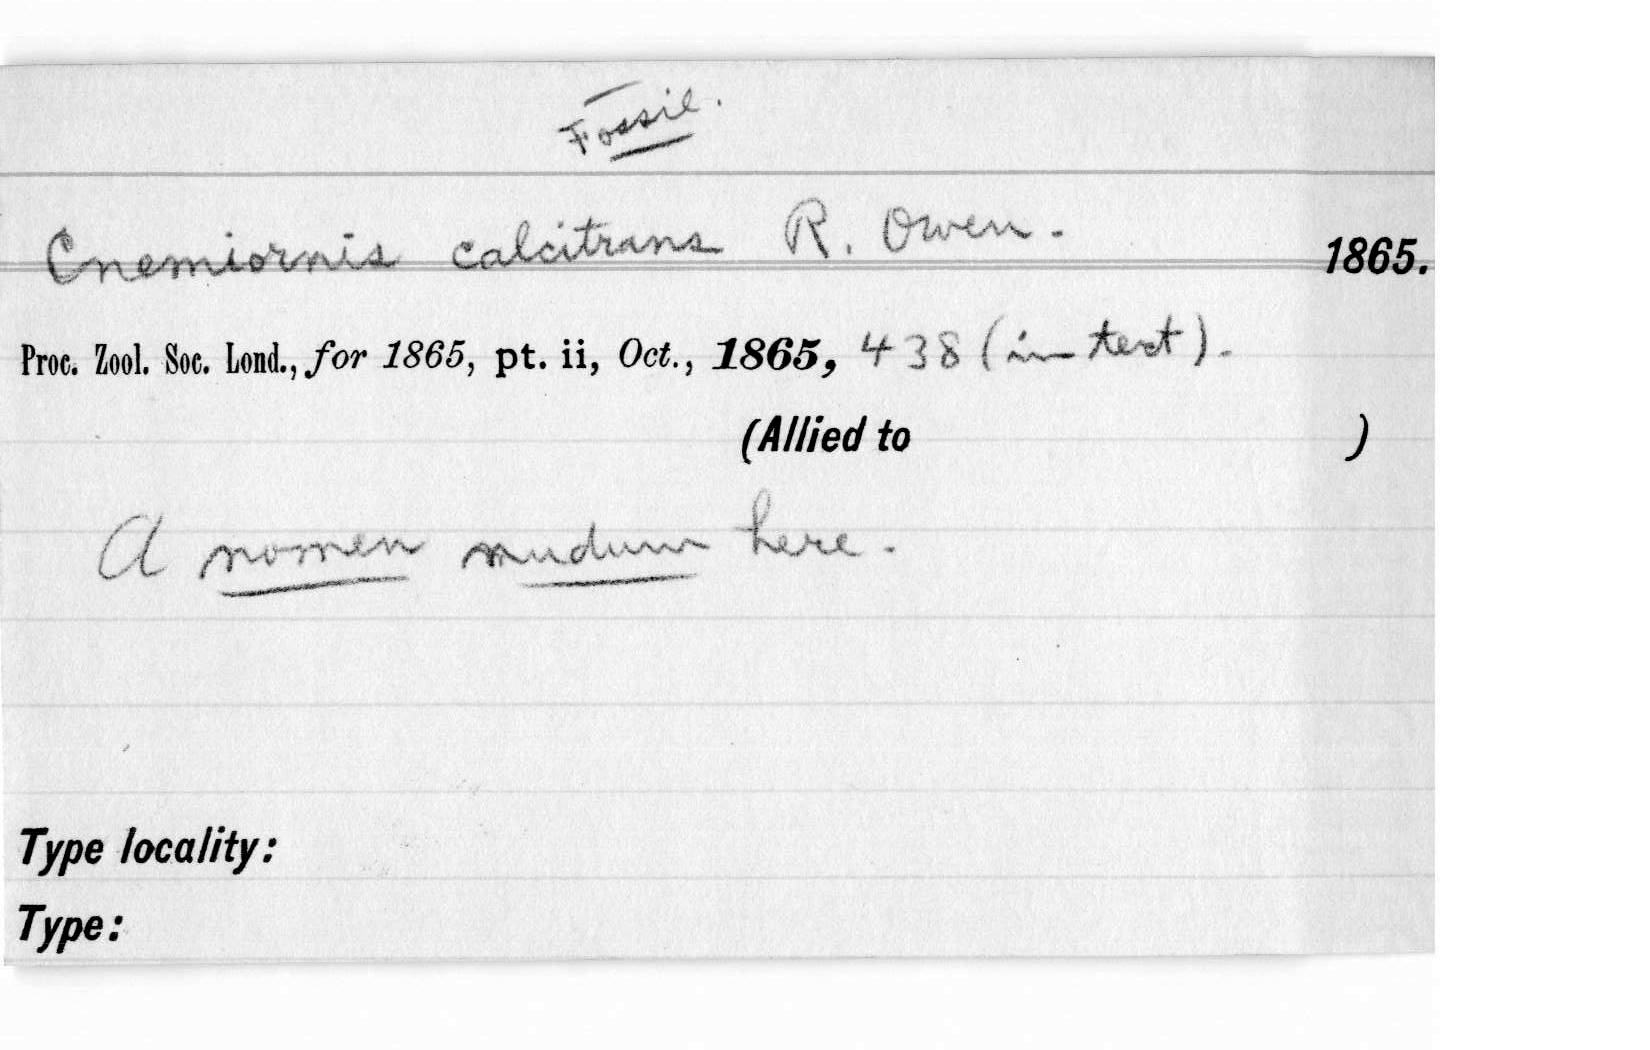 Fossil.
Cnemiornis calcitrans R. Owen. 1865.
Proc. Zool. Soc. Lond., for 1865, pt. ii, Oct., 1865, 438 (in text).
(Allied to )
A nomen nudum here.
Type locality:
Type: